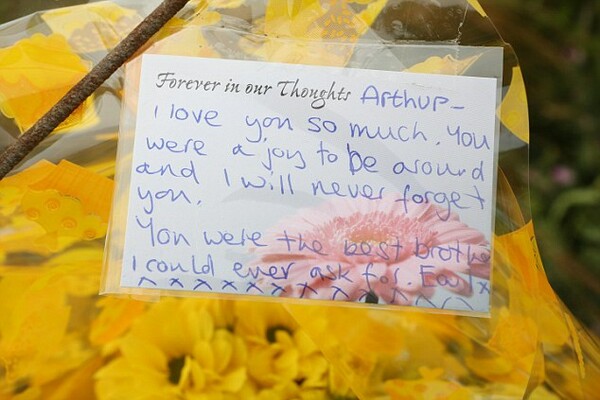 Forever in our Thoughts Arthur-
I love you so much. You
were a joy to be around
and I will never forget
you.
You were the best brothe
I could ever ask for.
x x x x x x x x x x x